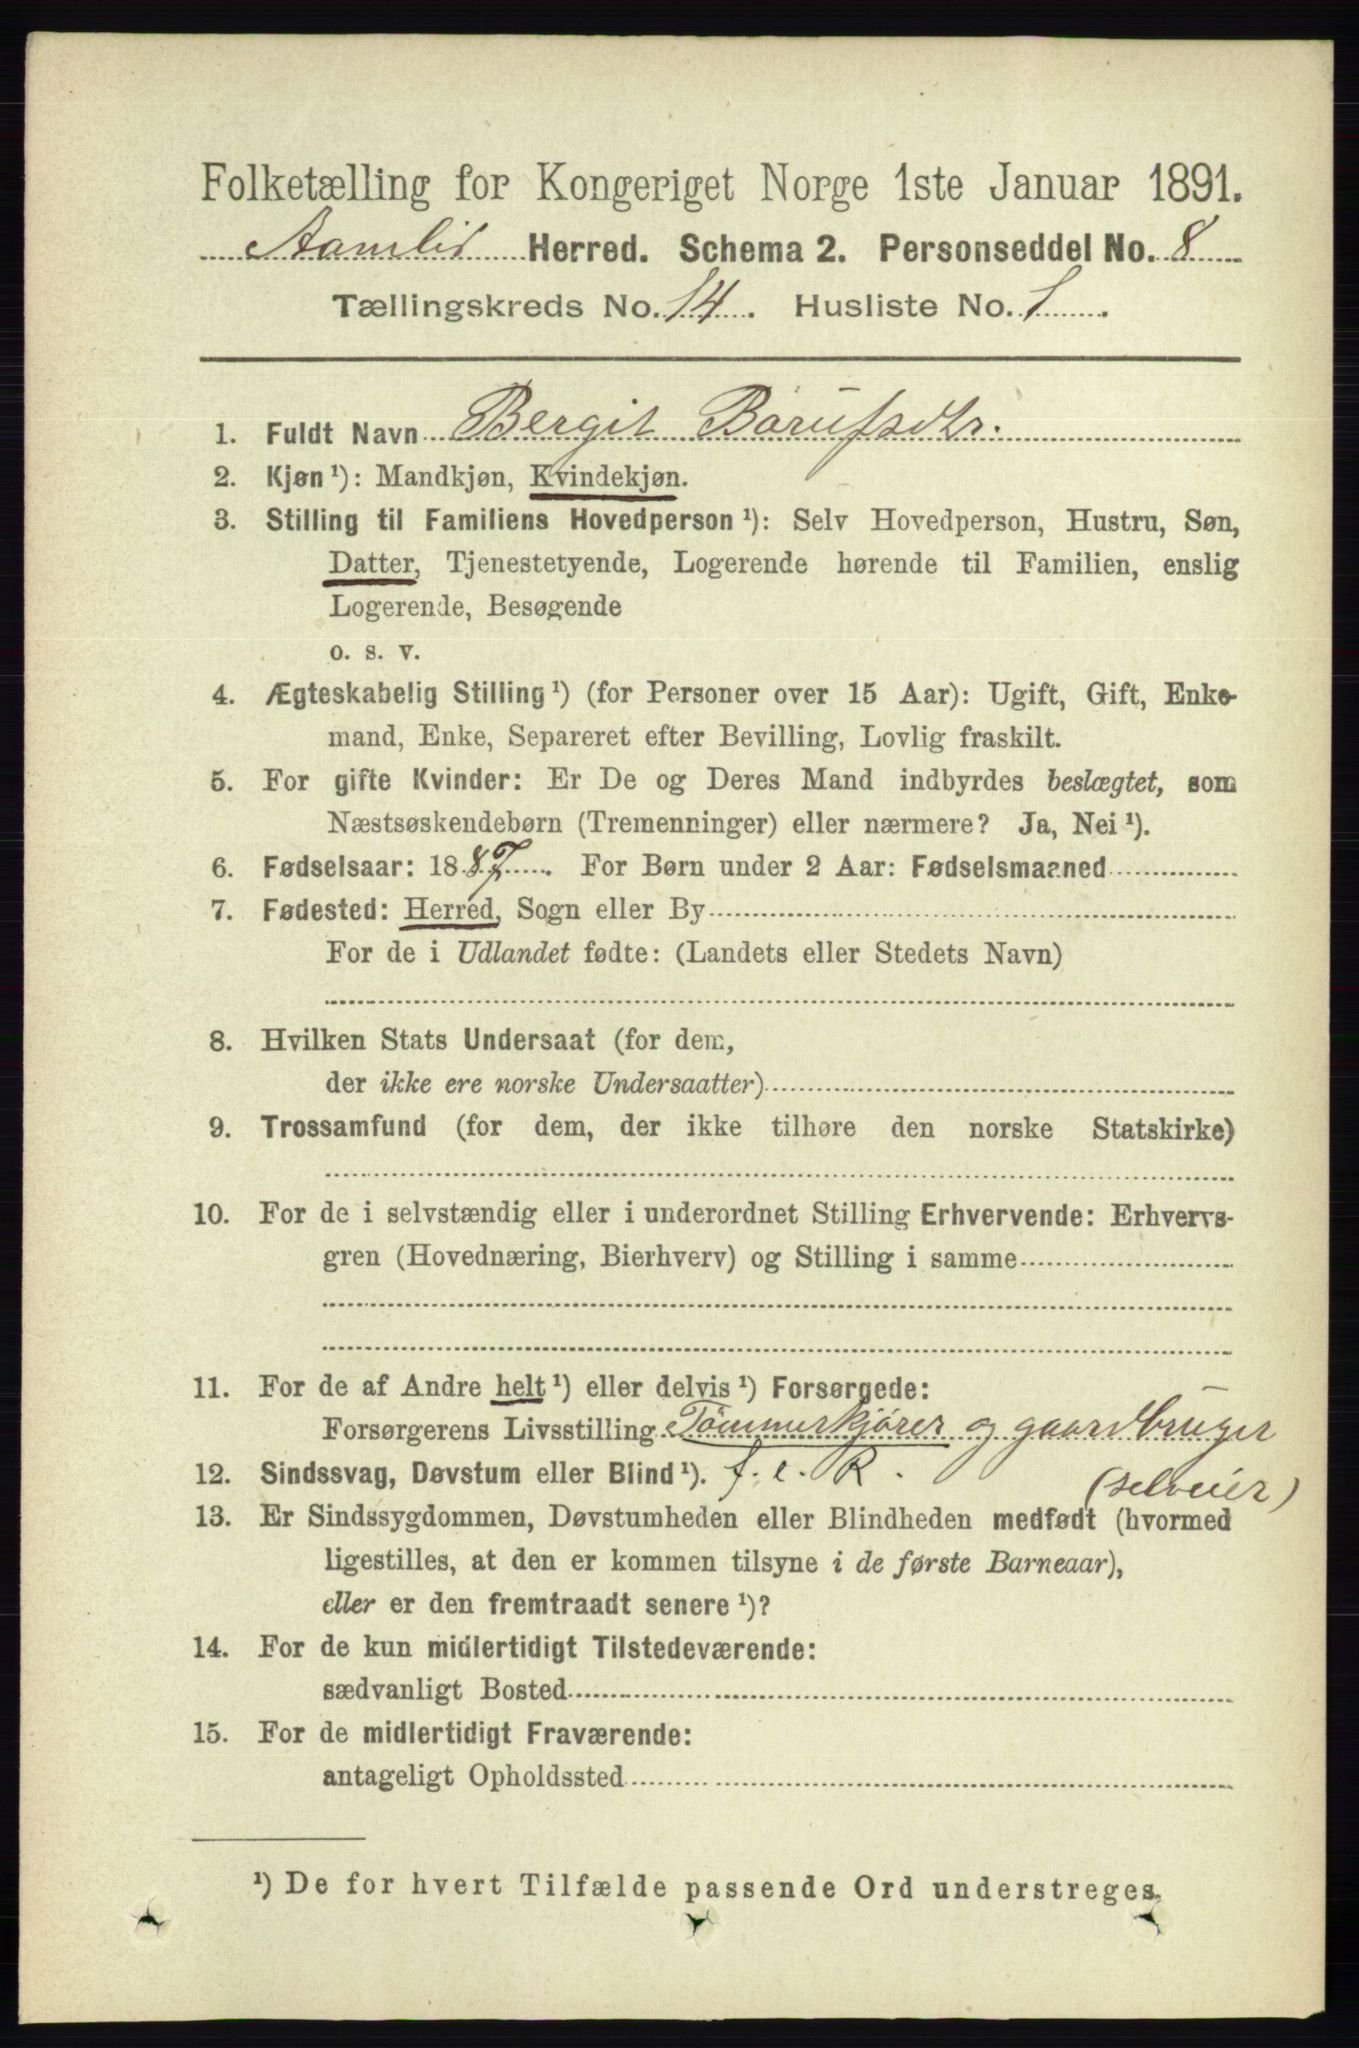 Folketælling for Kongeriget Norge 1ste Januar 1891.
Aamlid Herred. Schema 2. Personseddel No. 8
Tællingskreds No. 14. Husliste No. 1.
1. Fuldt Navn Bergit Børufsdtr.
2. Kjøn ¹): Mandkjøn, Kvindekjøn.
3. Stilling til Familiens Hovedperson ¹): Selv Hovedperson, Hustru, Søn,
Datter, Tjenestetyende, Logerende hørende til Familien, enslig
Logerende, Besøgende
o. s. v.
4. Ægteskabelig Stilling ¹) (for Personer over 15 Aar): Ugift, Gift, Enke-
mand, Enke, Separeret efter Bevilling, Lovlig fraskilt.
5. For gifte Kvinder: Er De og Deres Mand indbyrdes beslægtet, som
Næstsøskendebørn (Tremenninger) eller nærmere? Ja, Nei ¹).
6. Fødselsaar: 1887. For Børn under 2 Aar: Fødselsmaaned
7. Fødested: Herred, Sogn eller By
For de i Udlandet fødte: (Landets eller Stedets Navn)
8. Hvilken Stats Undersaat (for dem,
der ikke ere norske Undersaatter)
9. Trossamfund (for dem, der ikke tilhøre den norske Statskirke)
10. For de i selvstændig eller i underordnet Stilling Erhvervende: Erhvervs-
gren (Hovednæring, Bierhverv) og Stilling i samme
11. For de af Andre helt ¹) eller delvis ¹) Forsørgede:
Forsørgerens Livsstilling Tømmerkjører og gaardbruger
12. Sindssvag, Døvstum eller Blind ¹). f. e. R. (selveier)
13. Er Sindssygdommen, Døvstumheden eller Blindheden medfødt (hvormed
ligestilles, at den er kommen tilsyne i de første Barneaar),
eller er den fremtraadt senere ¹)?
14. For de kun midlertidigt Tilstedeværende:
sædvanligt Bosted
15. For de midlertidigt Fraværende:
antageligt Opholdssted
¹) De for hvert Tilfælde passende Ord understreges.